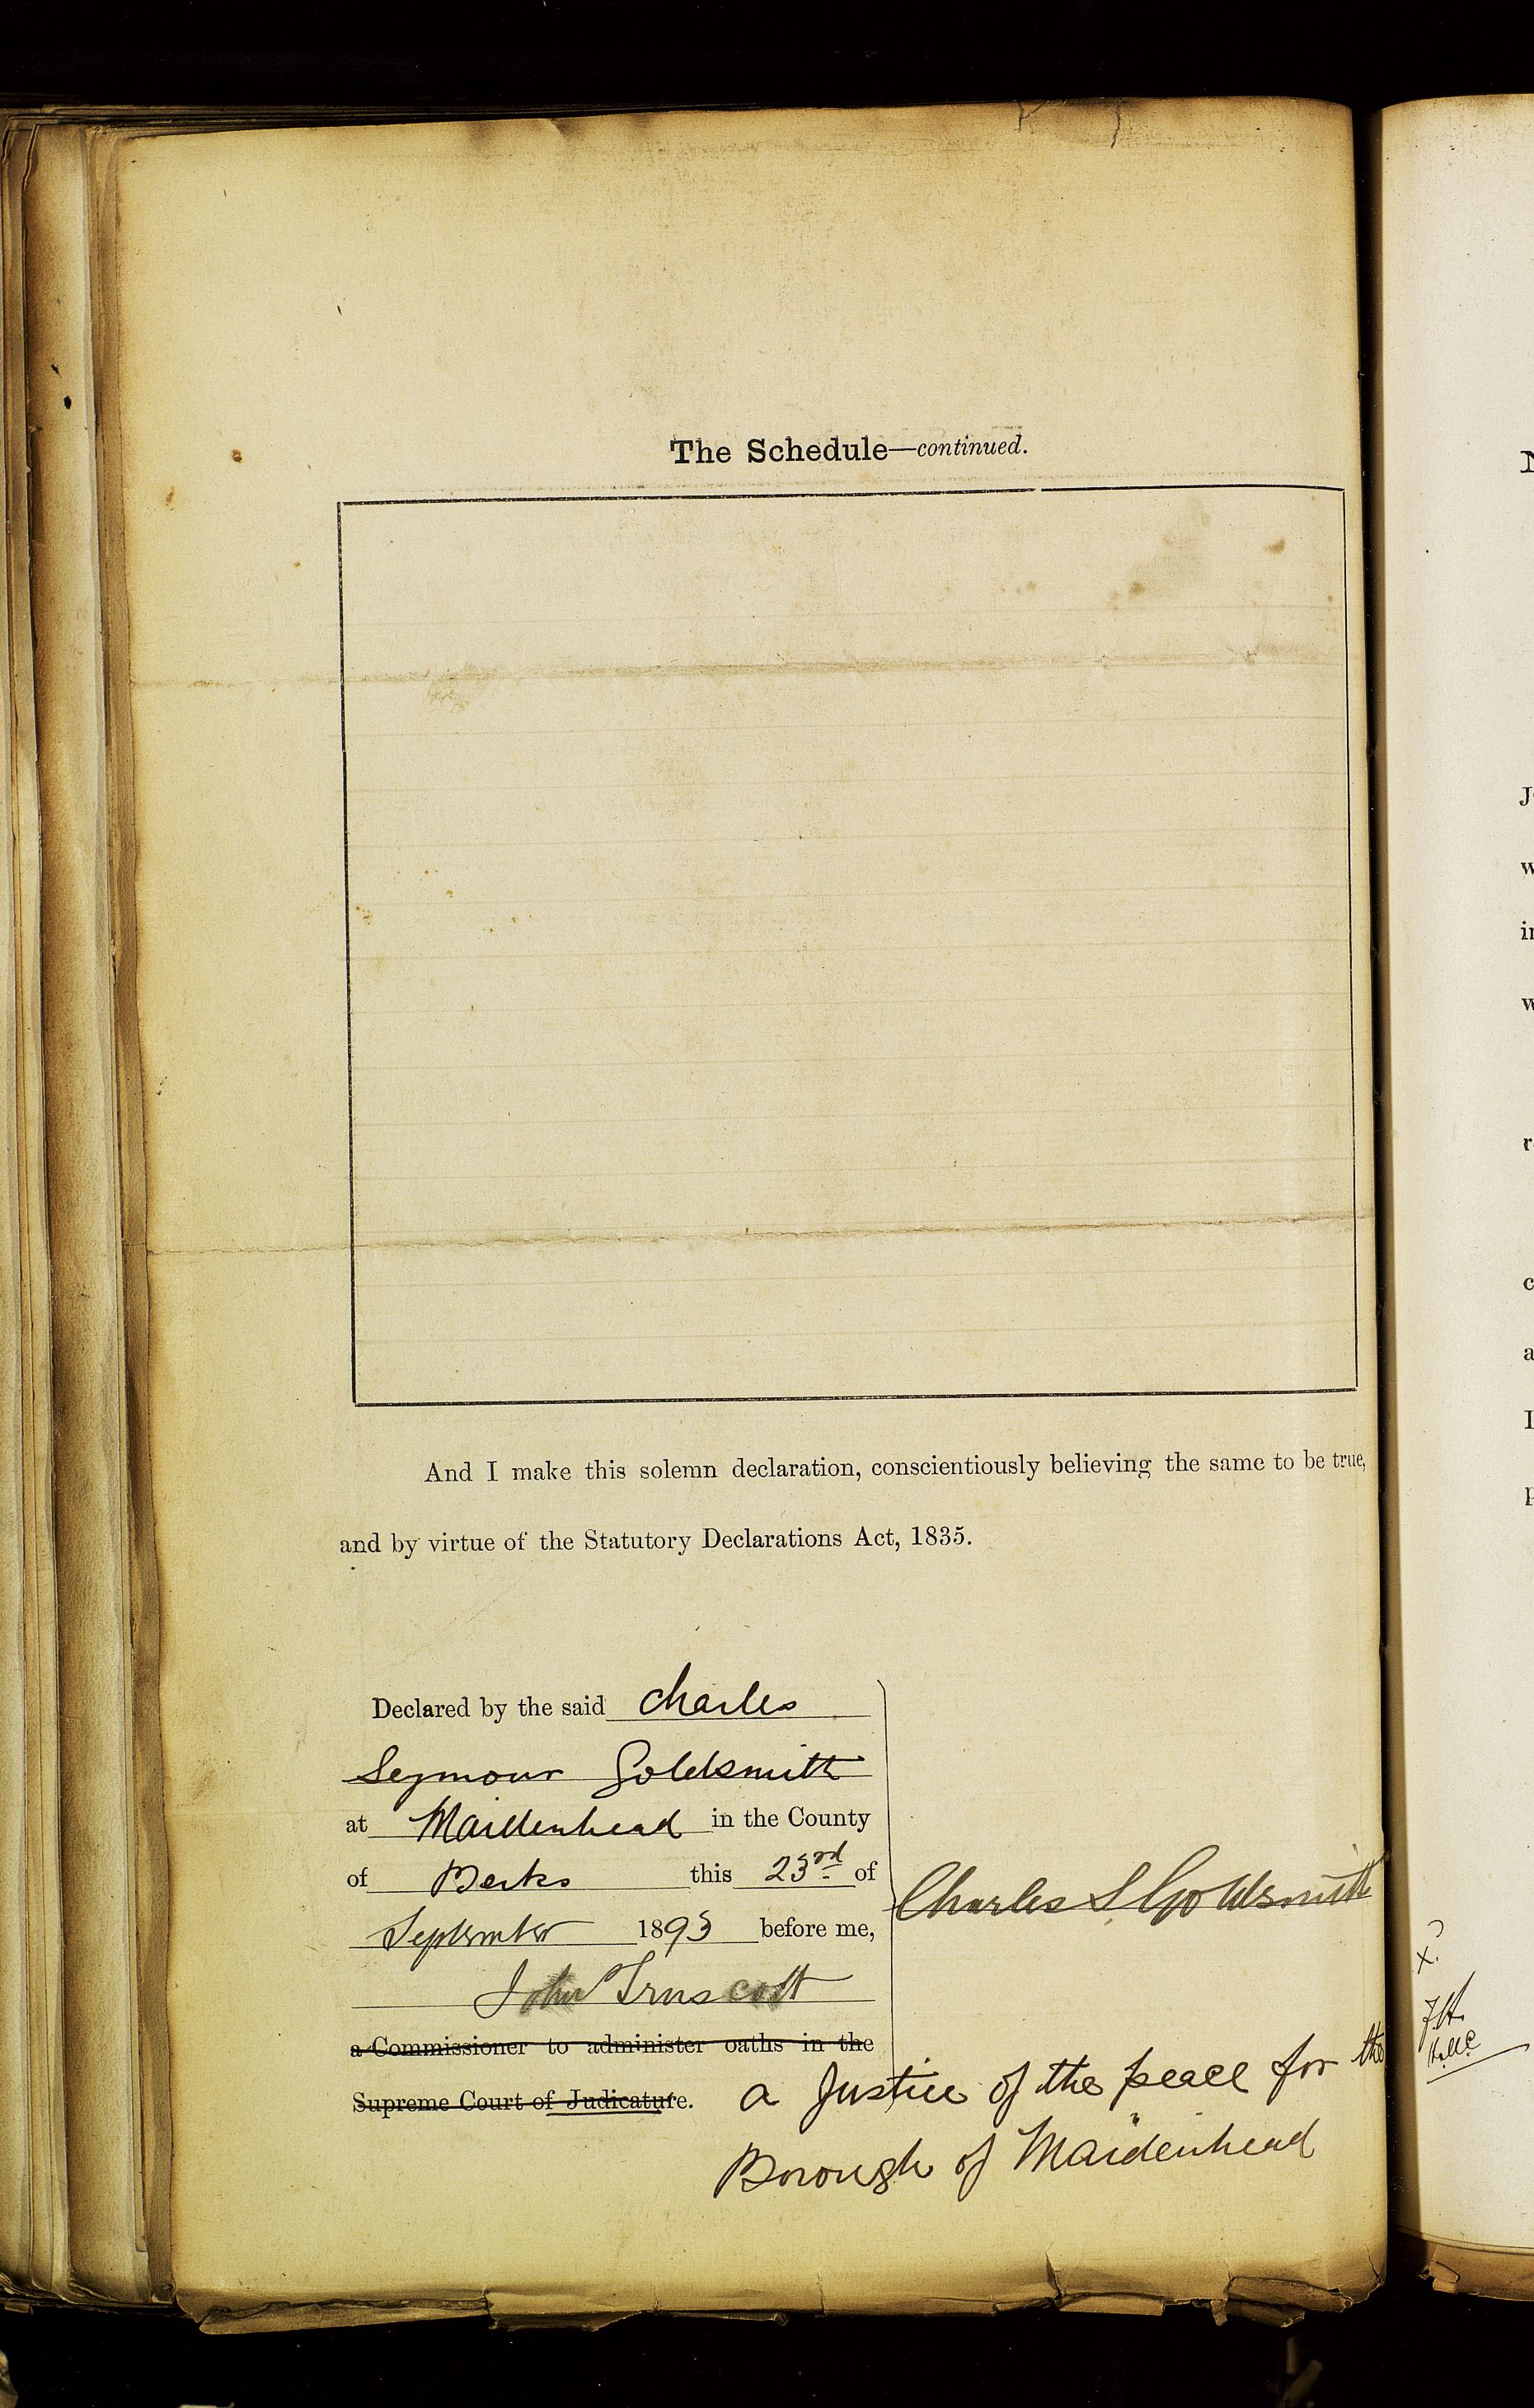 The Schedule—continued.
And I make this solemn declaration, conscientiously believing the same to be true,
and by virtue of the Statutory Declarations Act, 1835.
Declared by the said Charles
Seymour Goldsmith
at Maidenhead in the County
of Berks this 23rd of
September 1893 before me,
Charles S Goldsmith
John Truscott
a Commissioner to administer oaths in the
Supreme Court of Judicature.
a Justice of the peace for the
Borough of Maidenhead